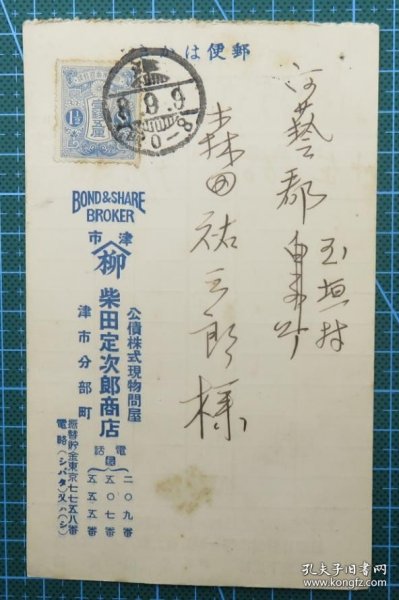 郵便はかき
河藝郡白子町
玉垣村
森田祐三郎様
津
8.9.9
后0-8
1½
BOND&SHARE
BROKER
津市
柳
公債株式現物問屋
柴田定次郎商店
津市分部町
電話
二〇九番
五〇七番
五五五番
振替貯金東京七七五八番
電略(シバタ)又ハ(シ)
孔夫子旧书网
book.kongfz.com